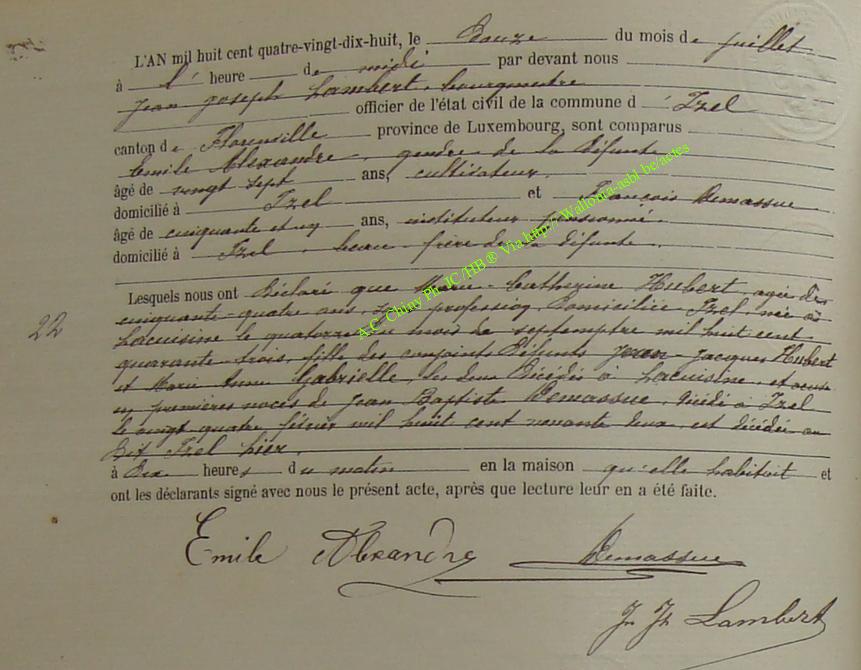 L'AN mil huit cent quatre-vingt-dix-huit, le Douze du mois de juillet
à l' heure de midi par devant nous
Jean Joseph Lambert, bourgmestre
officier de l'état civil de la commune d' Izel
canton de Florenville province de Luxembourg, sont comparus
Emile Alexandre, gendre de la défunte
âgé de vingt sept ans, cultivateur
domicilié à Izel et François Demassue
âgé de cinquante et un ans, instituteur pensionné
domicilié à Izel, beau-frère de la défunte.
Lesquels nous ont Déclaré que Marie-Catherine Hubert, agée de
cinquante-quatre ans, profession, Domiciliée Izel, née à
Lacuisine le quatorze du mois de septemptre mil huit cent
quarante-trois, fille des conjoints Défunts Jean-Jacques Hubert
et Marie Anne Gabrielle, les deux Décédés à Lacuisine, et veuve
en premières noces de Jean Baptiste Demassue, Décédé à Izel
le vingt quatre février mil huit cent nonante deux, est décédée au
Dit Izel hier,
à Dix heures du matin en la maison qu'elle habitait et
ont les déclarants signé avec nous le présent acte, après que lecture leur en a été faite.
22
Emile Alexandre Demassue
J. Jh Lambert
A.C. Chiny Ph. JC/HB ® Via http://Wallonia-asbl.be/actes